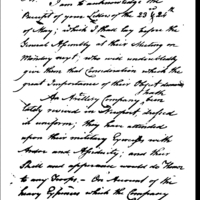 I am to acknowledge the
Receipt of your Letters of the 23 & 24th
of May; which I shall lay before the
General Assembly at their Meeting on
Monday next; who will undoubtedly
give them that Consideration which the
great Importance of their Object demands
An Artillery Company, com-
pletely owned in Newport, dressed
in uniform; they have attended
upon their military Exercises with
Ardor and Assiduity; and their
Skill and appearance would do Honor
to any Troops. On Account of the
heavy Expences which the Company